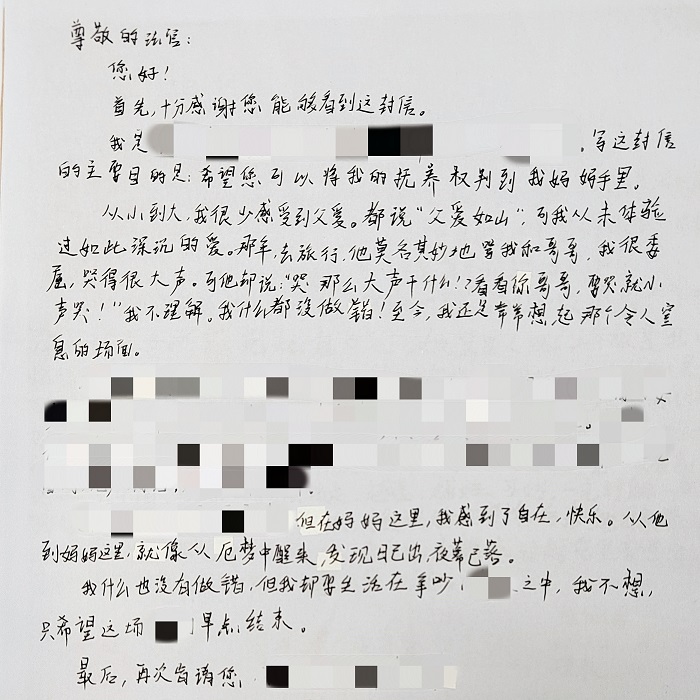 尊敬的法官：
您好！
首先，十分感谢您能够看到这封信。
我是 。写这封信
的主要目的是：希望您可以将我的抚养权判到我妈妈手里。
从小到大，我很少感受到父爱。都说“父爱如山”，可我从未体验
过如此深沉的爱。那年，去旅行，他莫名其妙地骂我和哥哥，我很委
屈，哭得很大声。可他却说：“哭那么大声干什么！？看看你哥哥，要哭就小
声哭！”我不理解。我什么都没做错！至今，我还是常常想起那个令人窒
息的场面。
但在妈妈这里，我感到了自在，快乐。从他
到妈妈这里，就像从厄梦中醒来，发现日已出，夜幕已落。
我什么也没有做错，但我却要生活在争吵 之中，我不想，
只希望这场 早点结束。
最后，再次恳请您，